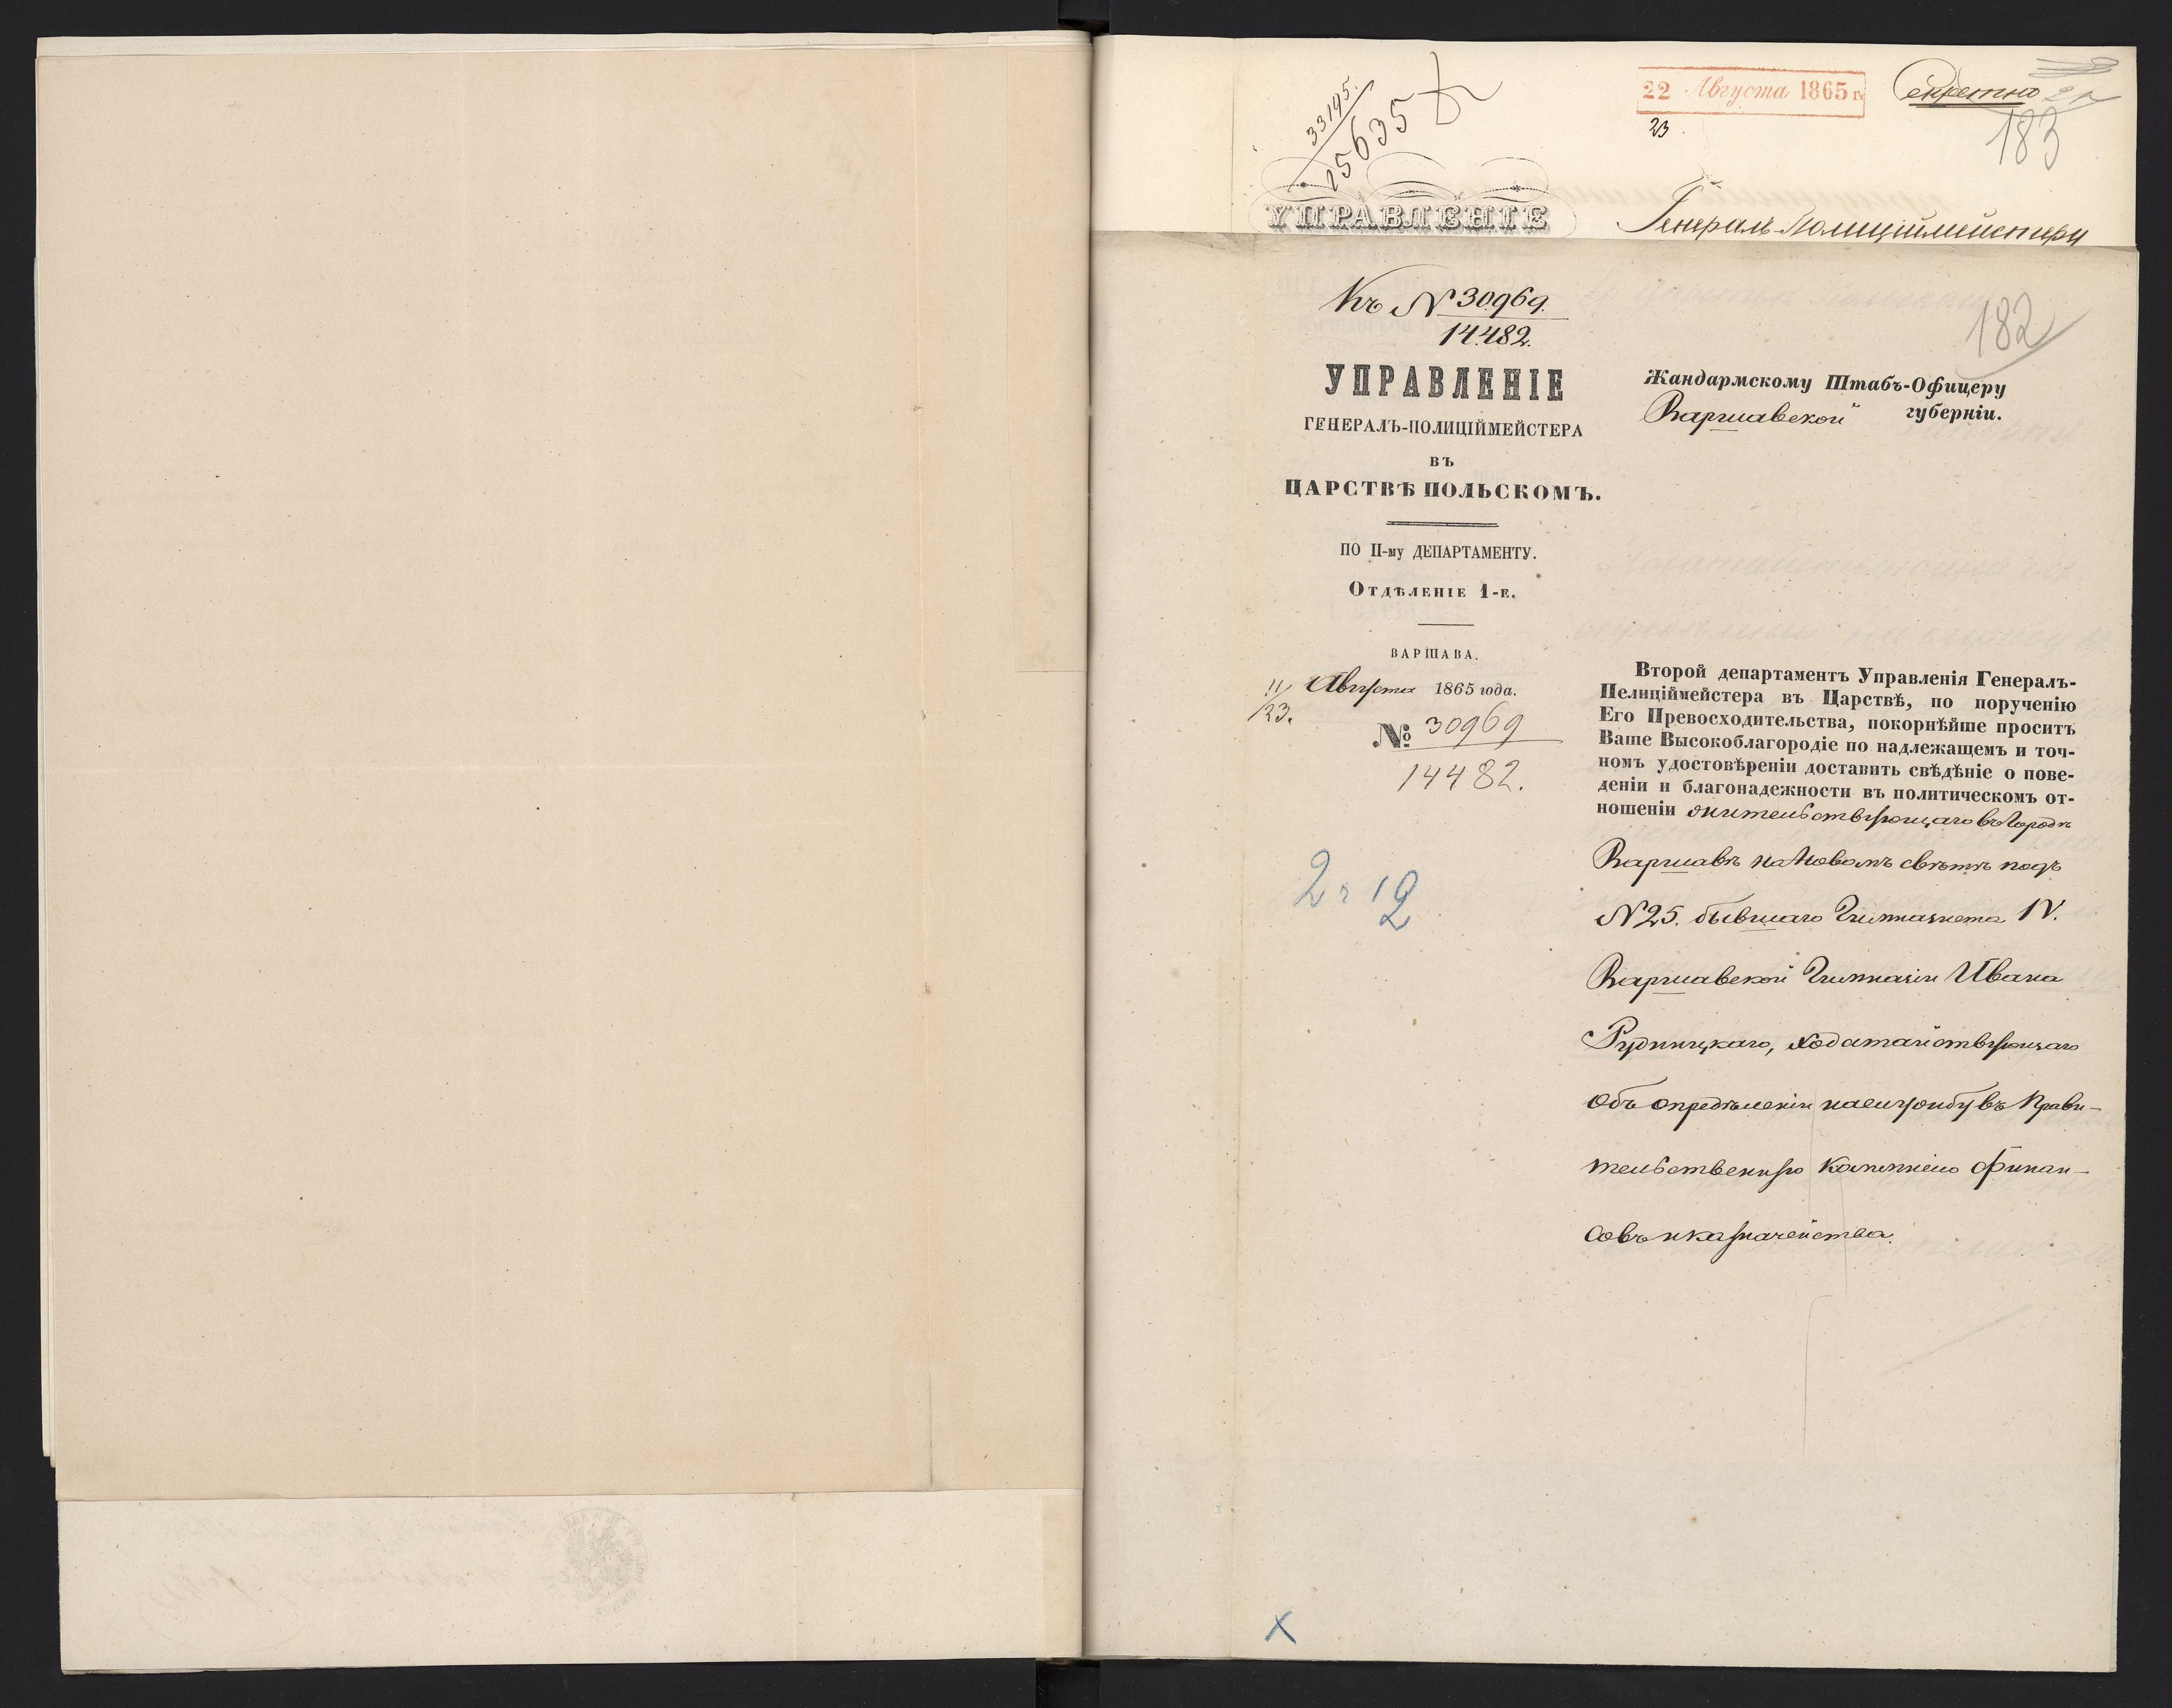 33195.
15635
22 Августа 1865 г.
23
Секретно
183
УПРАВЛЕНІЕ
Генералъ-Полиціймейстеру
Къ № 30969.
14.482.
182
УПРАВЛЕНІЕ
ГЕНЕРАЛЪ-ПОЛИЦІЙМЕЙСТЕРА
ВЪ
ЦАРСТВѢ ПОЛЬСКОМЪ.
ПО II-му ДЕПАРТАМЕНТУ.
Отдѣленіе 1-е.
ВАРШАВА.
11/23. Августа 1865 года.
№ 30969
14482.
Жандармскому Штабъ-Офицеру
Варшавской губерніи.
Второй департаментъ Управленія Генералъ-
Пелиціймейстера въ Царствѣ, по порученію
Его Превосходительства, покорнѣйше проситъ
Ваше Высокоблагородіе по надлежащемъ и точ-
номъ удостовѣреніи доставить свѣдѣніе о пове-
деніи и благонадежности въ политическомъ от-
ношеніи жительствующаго въ Городѣ
Варшавѣ на Новомъ свѣтѣ подъ
N 25. бывшаго Гимназиста IV.
Варшавской Гимназіи Ивана
Рудницкаго, ходатайствующаго
объ опредѣленіи на службу въ Прави-
тельственную Коммисію финан-
совъ и казначейства.